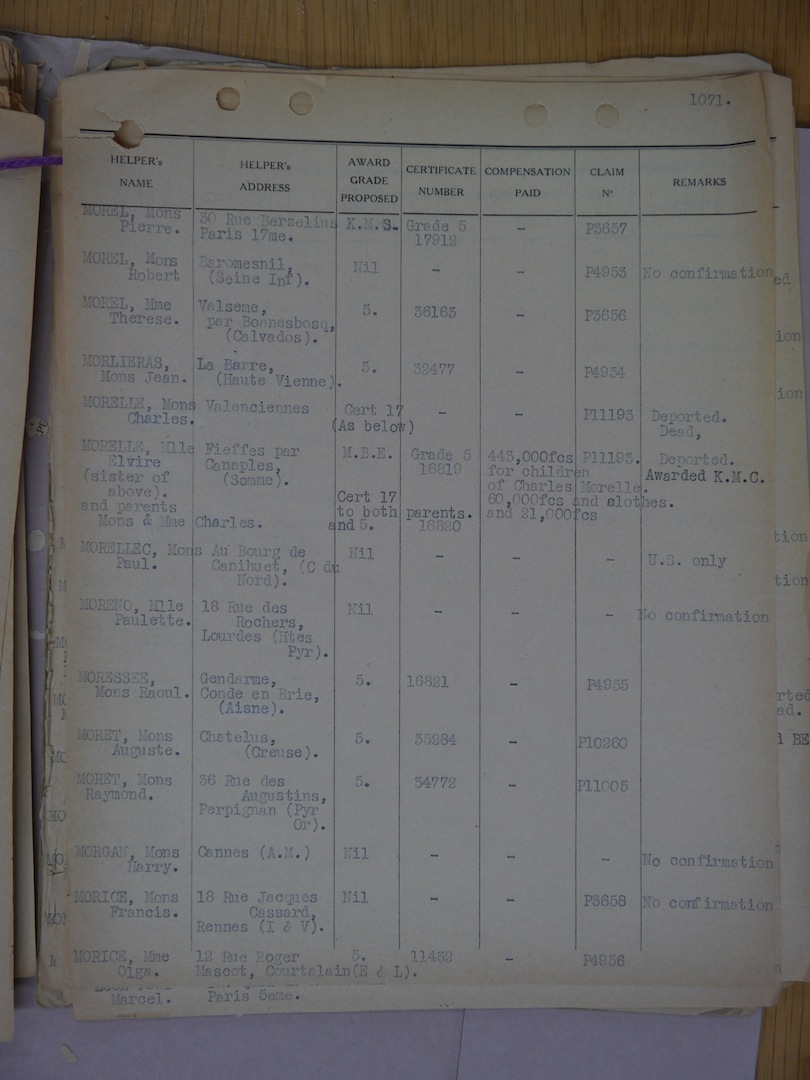 1071.
HELPER's NAME | HELPER's ADDRESS | AWARD GRADE PROPOSED | CERTIFICATE NUMBER | COMPENSATION PAID | CLAIM Nº | REMARKS
MOREL, Mons 30 Rue Berzelius K.M.S. Grade 5 - P3657
Pierre. Paris 17me. 17912
MOREL, Mons Baromesnil, Nil - - P4953 No confirmation
Robert (Seine Inf).
MOREL, Mme Valseme, 5. 36163 - P3656
Therese. par Bonnesbosq,
(Calvados).
MORLIERAS, La Barre, 5. 32477 - P4954
Mons Jean. (Haute Vienne).
MORELLE, Mons Valenciennes Cert 17 - - P11193 Deported.
Charles. (As below) Dead,
MORELLE, Mlle Fieffes par M.B.E. Grade 5 443,000fcs P11193. Deported.
Elvire Canaples, 16819 for children
(sister of (Somme). of Charles Morelle. Awarded K.M.C.
above). Cert 17 60,000fcs and clothes.
and parents to both parents. and 21,000fcs
Mons & Mme Charles. and 5. 16820
MORELLEC, Mons Au Bourg de Nil - - - U.S. only
Paul. Canihuet, (C du
Nord).
MORENO, Mlle 18 Rue des Nil - - - No confirmation
Paulette. Rochers,
Lourdes (Htes
Pyr).
MORESSEE, Gendarme, 5. 16821 - P4955
Mons Raoul. Conde en Brie,
(Aisne).
MORET, Mons Chatelus, 5. 35284 - P10260
Auguste. (Creuse).
MORET, Mons 36 Rue des 5. 34772 - P11005
Raymond. Augustins,
Perpignan (Pyr
Or).
MORGAN, Mons Cannes (A.M.) Nil - - - No confirmation
Harry.
MORICE, Mons 18 Rue Jacques Nil - - P3658 No confirmation
Francis. Cassard,
Rennes (I & V).
MORICE, Mme 12 Rue Roger 5. 11432 - P4956
Olga. Mascot, Courtalain(E & L).
Marcel. Paris 5eme.